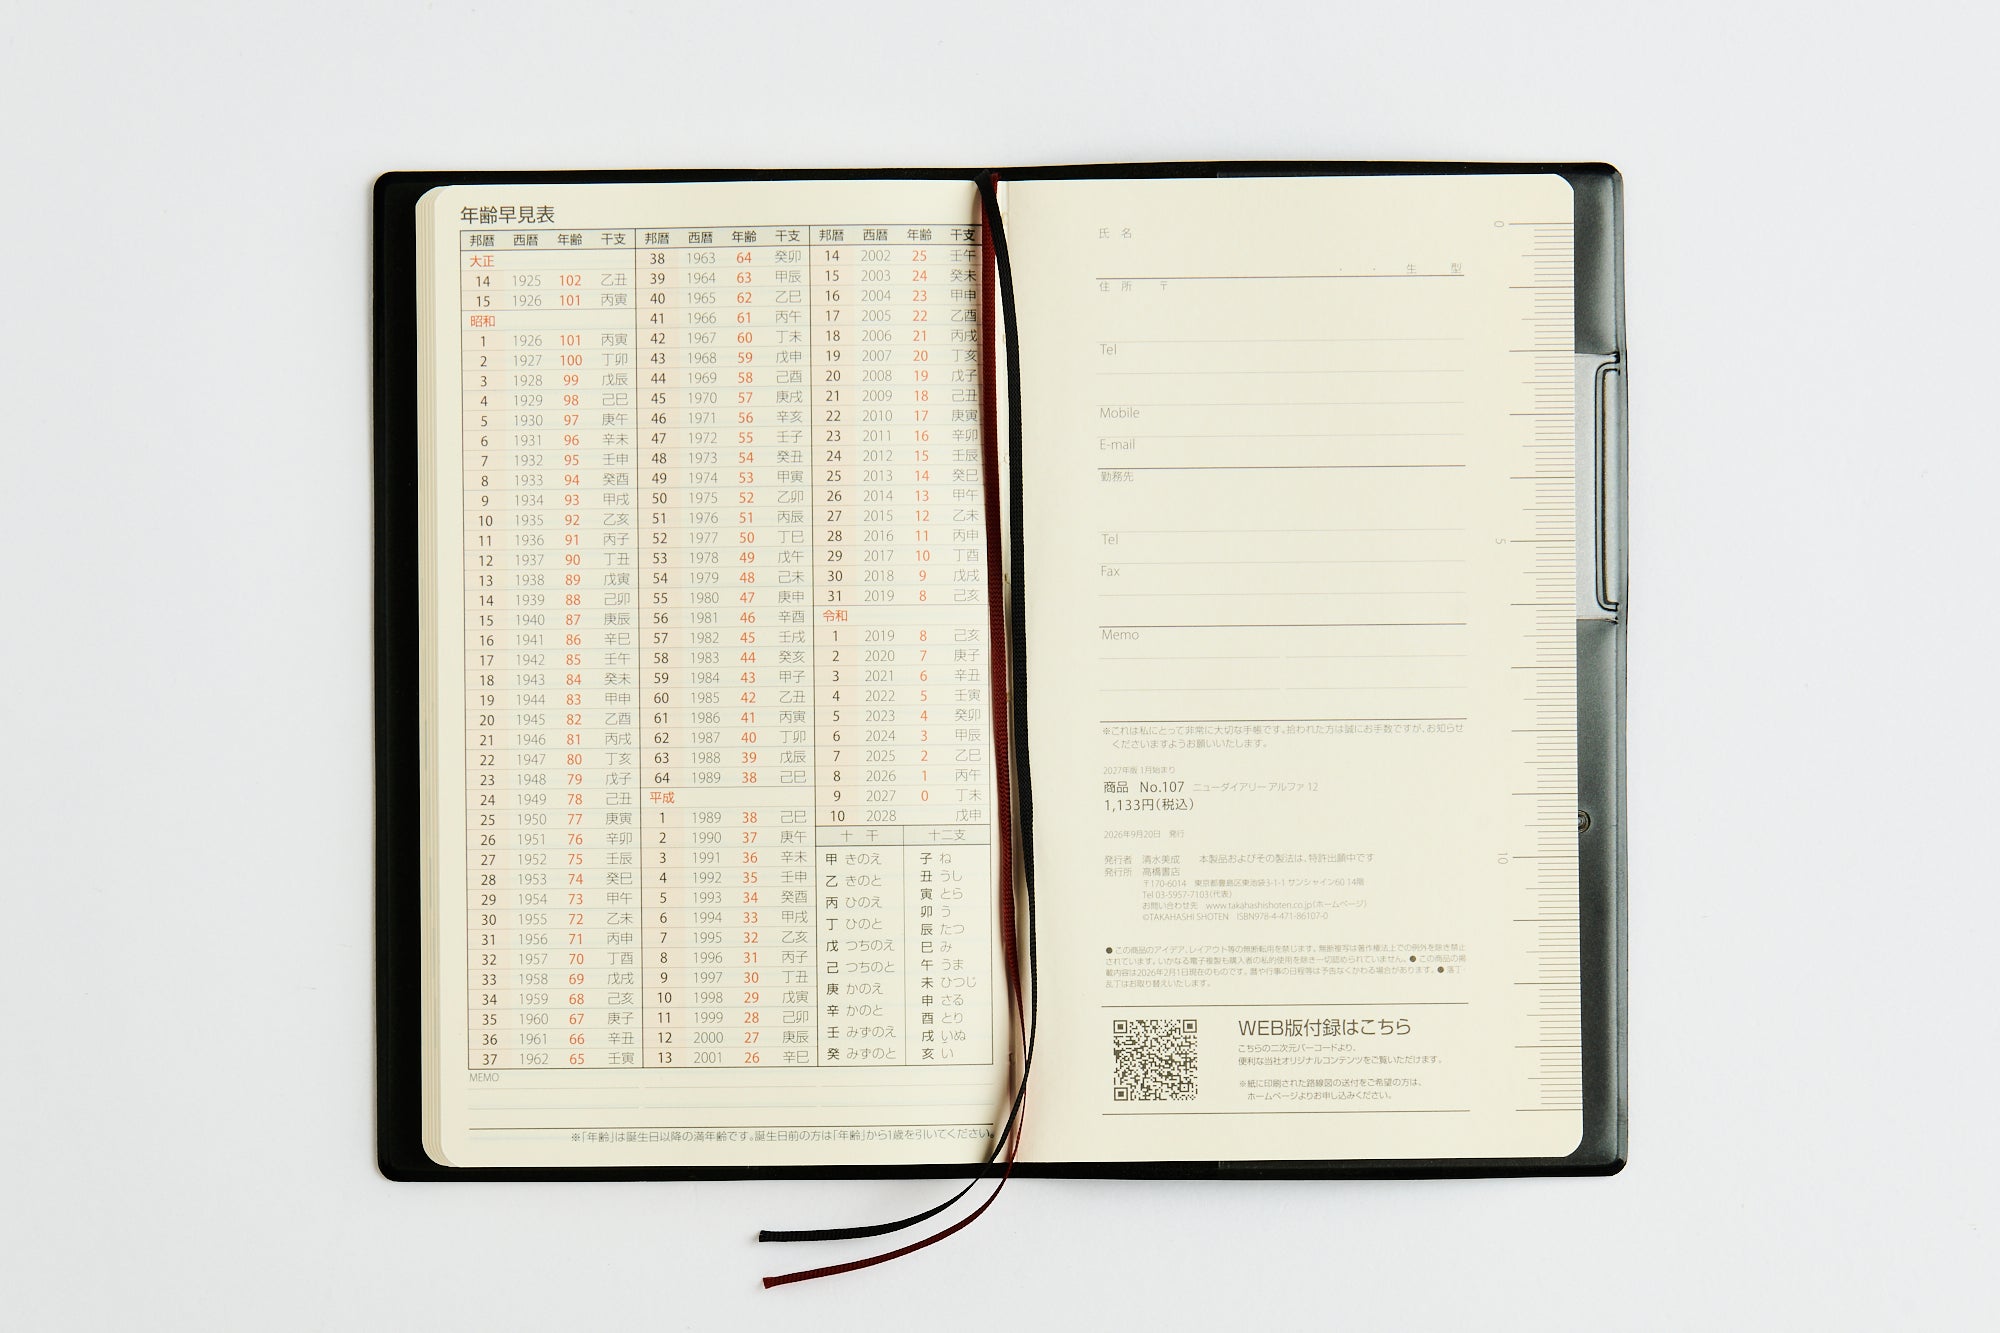 年齢早見表
邦暦 西暦 年齢 干支
大正
14 1925 102 乙丑
15 1926 101 丙寅
昭和
1 1926 101 丙寅
2 1927 100 丁卯
3 1928 99 戊辰
4 1929 98 己巳
5 1930 97 庚午
6 1931 96 辛未
7 1932 95 壬申
8 1933 94 癸酉
9 1934 93 甲戌
10 1935 92 乙亥
11 1936 91 丙子
12 1937 90 丁丑
13 1938 89 戊寅
14 1939 88 己卯
15 1940 87 庚辰
16 1941 86 辛巳
17 1942 85 壬午
18 1943 84 癸未
19 1944 83 甲申
20 1945 82 乙酉
21 1946 81 丙戌
22 1947 80 丁亥
23 1948 79 戊子
24 1949 78 己丑
25 1950 77 庚寅
26 1951 76 辛卯
27 1952 75 壬辰
28 1953 74 癸巳
29 1954 73 甲午
30 1955 72 乙未
31 1956 71 丙申
32 1957 70 丁酉
33 1958 69 戊戌
34 1959 68 己亥
35 1960 67 庚子
36 1961 66 辛丑
37 1962 65 壬寅
邦暦 西暦 年齢 干支
38 1963 64 癸卯
39 1964 63 甲辰
40 1965 62 乙巳
41 1966 61 丙午
42 1967 60 丁未
43 1968 59 戊申
44 1969 58 己酉
45 1970 57 庚戌
46 1971 56 辛亥
47 1972 55 壬子
48 1973 54 癸丑
49 1974 53 甲寅
50 1975 52 乙卯
51 1976 51 丙辰
52 1977 50 丁巳
53 1978 49 戊午
54 1979 48 己未
55 1980 47 庚申
56 1981 46 辛酉
57 1982 45 壬戌
58 1983 44 癸亥
59 1984 43 甲子
60 1985 42 乙丑
61 1986 41 丙寅
62 1987 40 丁卯
63 1988 39 戊辰
64 1989 38 己巳
平成
1 1989 38 己巳
2 1990 37 庚午
3 1991 36 辛未
4 1992 35 壬申
5 1993 34 癸酉
6 1994 33 甲戌
7 1995 32 乙亥
8 1996 31 丙子
9 1997 30 丁丑
10 1998 29 戊寅
11 1999 28 己卯
12 2000 27 庚辰
13 2001 26 辛巳
邦暦 西暦 年齢 干支
14 2002 25 壬午
15 2003 24 癸未
16 2004 23 甲申
17 2005 22 乙酉
18 2006 21 丙戌
19 2007 20 丁亥
20 2008 19 戊子
21 2009 18 己丑
22 2010 17 庚寅
23 2011 16 辛卯
24 2012 15 壬辰
25 2013 14 癸巳
26 2014 13 甲午
27 2015 12 乙未
28 2016 11 丙申
29 2017 10 丁酉
30 2018 9 戊戌
31 2019 8 己亥
令和
1 2019 8 己亥
2 2020 7 庚子
3 2021 6 辛丑
4 2022 5 壬寅
5 2023 4 癸卯
6 2024 3 甲辰
7 2025 2 乙巳
8 2026 1 丙午
9 2027 0 丁未
10 2028 戊申
十 干
甲 きのえ
乙 きのと
丙 ひのえ
丁 ひのと
戊 つちのえ
己 つちのと
庚 かのえ
辛 かのと
壬 みずのえ
癸 みずのと
十二支
子 ね
丑 うし
寅 とら
卯 う
辰 たつ
巳 み
午 うま
未 ひつじ
申 さる
酉 とり
戌 いぬ
亥 い
MEMO
※「年齢」は誕生日以降の満年齢です。誕生日前の方は「年齢」から1歳を引いてください。
氏 名
・ ・ 生 型
住 所 〒
Tel
Mobile
E-mail
勤務先
Tel
Fax
Memo
※これは私にとって非常に大切な手帳です。拾われた方は誠にお手数ですが、お知らせ
くださいますようお願いいたします。
2027年版 1月始まり
商品 No.107 ニューダイアリー アルファ 12
1,133円(税込)
2026年9月20日 発行
発行者 清水美成 本製品およびその製法は、特許出願中です
発行所 高橋書店
〒170-6014 東京都豊島区東池袋3-1-1 サンシャイン60 14階
Tel 03-5957-7103(代表)
お問い合わせ先 www.takahashishoten.co.jp(ホームページ)
©TAKAHASHI SHOTEN ISBN978-4-471-86107-0
● この商品のアイデア、レイアウト等の無断転用を禁じます。無断複写は著作権法上での例外を除き禁止
されています。いかなる電子複製も購入者の私的使用を除き一切認められていません。● この商品の掲
載内容は2026年2月1日現在のものです。暦や行事の日程等は予告なくかわる場合があります。● 落丁・
乱丁はお取り替えいたします。
WEB版付録はこちら
こちらの二次元バーコードより、
便利な当社オリジナルコンテンツをご覧いただけます。
※紙に印刷された路線図の送付をご希望の方は、
ホームページよりお申し込みください。
0
5
10